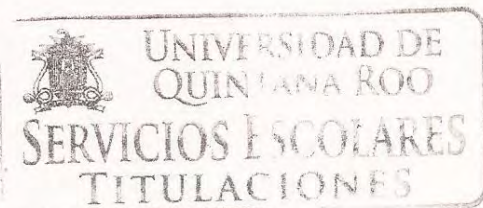 UNIVERSIDAD DE
QUINTANA ROO
SERVICIOS ESCOLARES
TITULACIONES